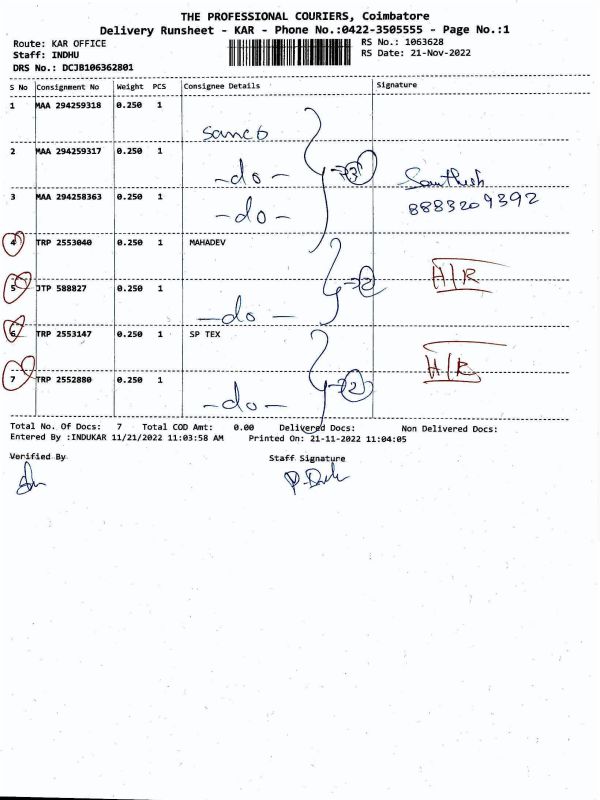 THE PROFESSIONAL COURIERS, Coimbatore
Delivery Runsheet - KAR - Phone No.:0422-3505555 - Page No.:1
Route: KAR OFFICE
RS No.: 1063628
Staff: INDHU
RS Date: 21-Nov-2022
DRS No.: DCJB106362801
S No Consignment No Weight PCS Consignee Details Signature
1 MAA 294259318 0.250 1
sanco
2 MAA 294259317 0.250 1
-do- 3
3 MAA 294258363 0.250 1
-do- 8883209392
4 TRP 2553040 0.250 1 MAHADEV
H/R
5 JTP 588827 0.250 1 2
-do-
6 TRP 2553147 0.250 1 SP TEX
H/R
7 TRP 2552880 0.250 1 2
-do-
Total No. Of Docs: 7 Total COD Amt: 0.00 Delivered Docs: Non Delivered Docs:
Entered By :INDUKAR 11/21/2022 11:03:58 AM Printed On: 21-11-2022 11:04:05
Verified By Staff Signature